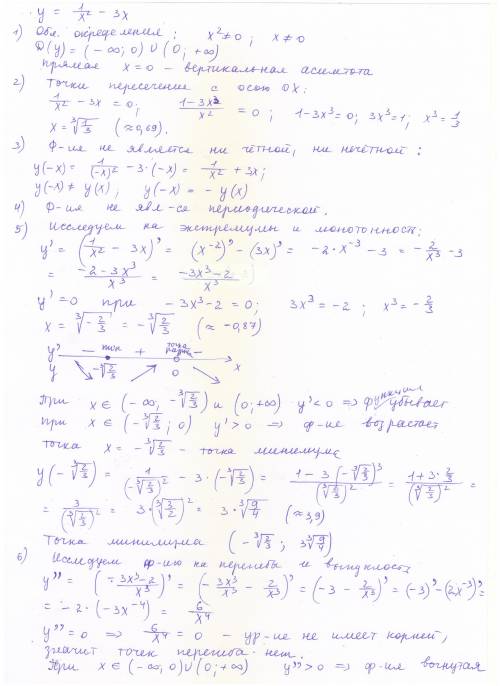 y = 1/x² − 3x
1) Обл. определения: x² ≠ 0; x ≠ 0
D(y) = (−∞; 0) ∪ (0; +∞)
прямая x = 0 – вертикальная асимптота
2) Точки пересечение с осью OX:
1/x² − 3x = 0; (1 − 3x³)/x² = 0; 1 − 3x³ = 0; 3x³ = 1; x³ = 1/3
x = ∛(1/3) (≈ 0,69).
3) Ф-ия не является ни чётной, ни нечётной:
y(−x) = 1/(−x)² − 3·(−x) = 1/x² + 3x;
y(−x) ≠ y(x), y(−x) = − y(x)
4) Ф-ия не явл-ся периодической.
5) Исследуем на экстремумы и монотонность:
y' = (1/x² − 3x)' = (x⁻²)' − (3x)' = −2·x⁻³ − 3 = −2/x³ − 3
= (−2 − 3x³)/x³ = (−3x³ − 2)/x³
y' = 0 при −3x³ − 2 = 0; 3x³ = −2; x³ = −2/3
x = ∛(−2/3) = −∛(2/3) (≈ −0,87)
y' − min + точка разр. −
y −∛(2/3) 0 x
При x ∈ (−∞, −∛(2/3)) и (0; +∞) y' < 0 ⇒ функция убывает
при x ∈ (−∛(2/3); 0) y' > 0 ⇒ ф-ие возрастает
точка x = −∛(2/3) – точка минимума
y(−∛(2/3)) = 1/(−∛(2/3))² − 3·(−∛(2/3)) = (1 − 3(−∛(2/3))³)/(∛(2/3))² = (1 + 3·2/3)/(∛(2/3))² =
= 3/(∛(2/3))² = 3·(∛(3/2))² = 3·∛(9/4) (≈ 3,9)
Точка минимума (−∛(2/3); 3∛(9/4))
6) Исследуем ф-ию на перегибы и выпуклость
y'' = ((−3x³ − 2)/x³)' = (−3x³/x³ − 2/x³)' = (−3 − 2/x³)' = (−3)' − (2x⁻³)' =
= −2·(−3x⁻⁴) = 6/x⁴
y'' = 0 ⇒ 6/x⁴ = 0 – ур-ие не имеет корней,
значит точек перегиба нет.
При x ∈ (−∞, 0) ∪ (0; +∞) y'' > 0 ⇒ ф-ия вогнутая